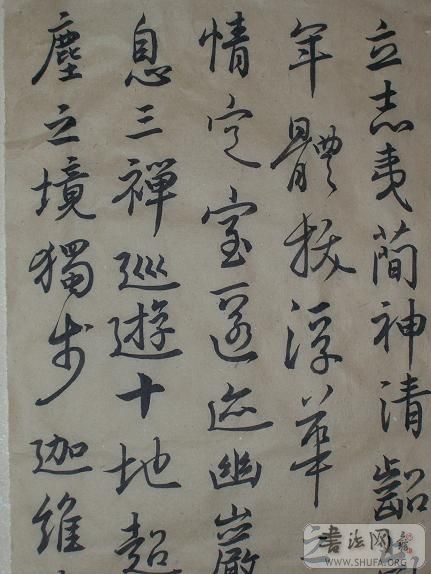 立志夷簡神清齠
年體拔浮華
情定室匿迹幽巖
息三禪巡遊十地超
塵之境獨步迦維
書法网
WWW.SHUFA.ORG